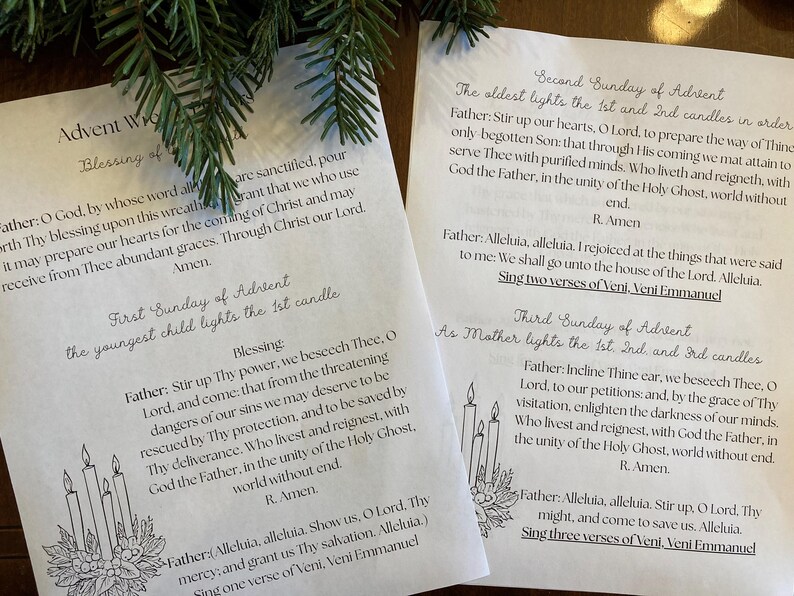 Advent
Blessing of
Father: O God, by whose word all are sanctified, pour
orth Thy blessing upon this wreath, grant that we who use
it may prepare our hearts for the coming of Christ and may
receive from Thee abundant graces. Through Christ our Lord.
Amen.
First Sunday of Advent
the youngest child lights the 1st candle
Blessing:
Father: Stir up Thy power, we beseech Thee, O
Lord, and come: that from the threatening
dangers of our sins we may deserve to be
rescued by Thy protection, and to be saved by
Thy deliverance. Who livest and reignest, with
God the Father, in the unity of the Holy Ghost,
world without end.
R. Amen.
Father:(Alleluia, alleluia. Show us, O Lord, Thy
mercy; and grant us Thy salvation. Alleluia.)
Sing one verse of Veni, Veni Emmanuel
Second Sunday of Advent
The oldest lights the 1st and 2nd candles in order
Father: Stir up our hearts, O Lord, to prepare the way of Thine
only-begotten Son: that through His coming we mat attain to
serve Thee with purified minds. Who liveth and reigneth, with
God the Father, in the unity of the Holy Ghost, world without
end.
R. Amen
Father: Alleluia, alleluia. I rejoiced at the things that were said
to me: We shall go unto the house of the Lord. Alleluia.
Sing two verses of Veni, Veni Emmanuel
Third Sunday of Advent
As Mother lights the 1st, 2nd, and 3rd candles
Father: Incline Thine ear, we beseech Thee, O
Lord, to our petitions: and, by the grace of Thy
visitation, enlighten the darkness of our minds.
Who livest and reignest, with God the Father, in
the unity of the Holy Ghost, world without end.
R. Amen.
Father: Alleluia, alleluia. Stir up, O Lord, Thy
might, and come to save us. Alleluia.
Sing three verses of Veni, Veni Emmanuel